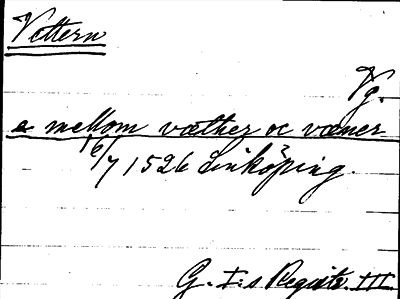 Vettern
Vg.
e mellom væther oc væner
16/7 1526 Linköping.
G. I:s Registr. III